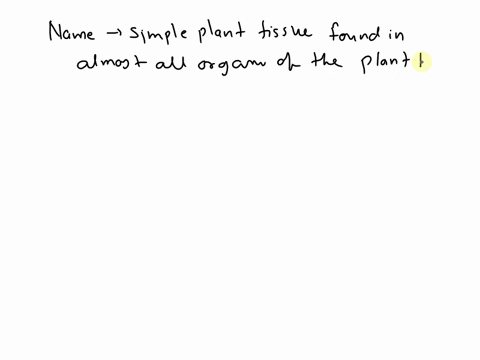 Name → simple plant tissue found in
almost all organ of the plant